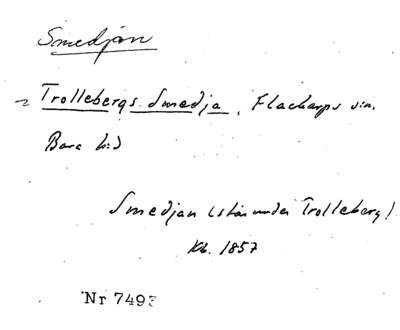 Smedjan
~ Trollebergs Smedja, Flackarps sn,
Bara hd
Smedjan (står under Trolleberg).
Kb. 1857
Nr 7493